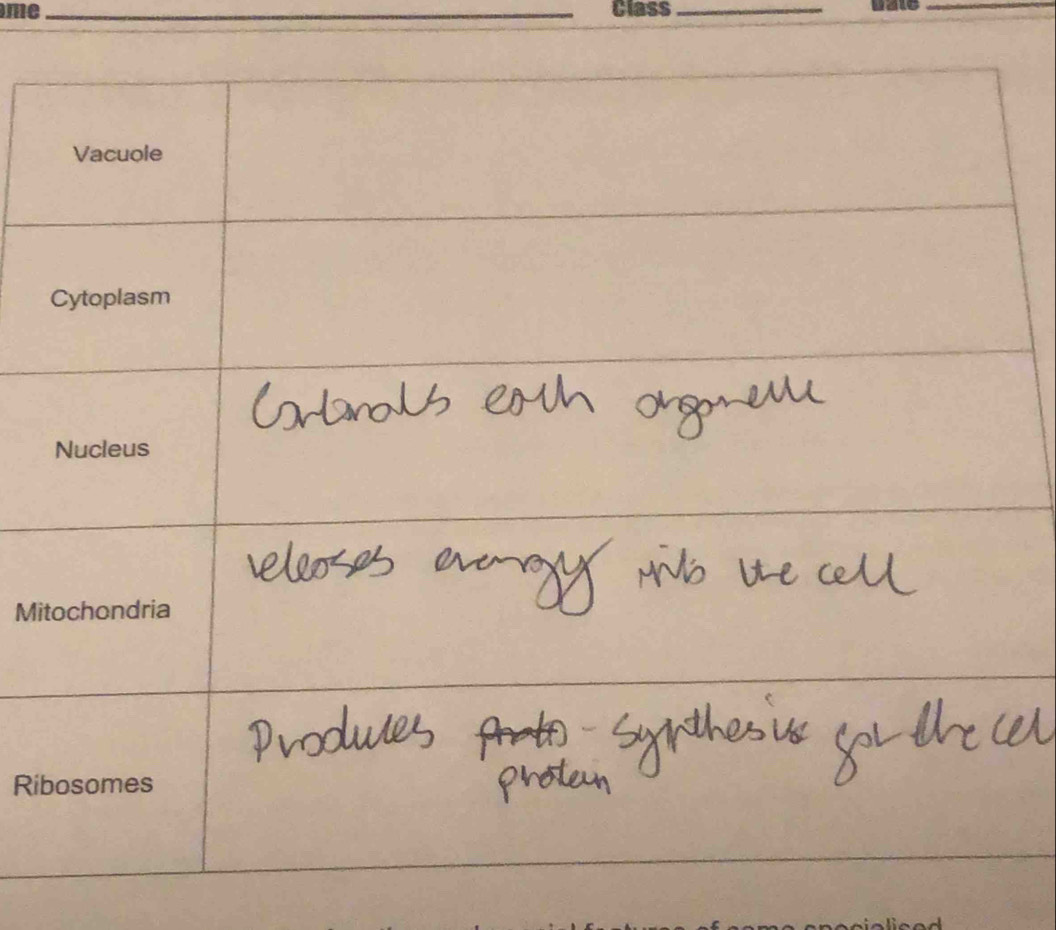 ame Class Date
Vacuole
Cytoplasm
Nucleus Controls each organelle
Mitochondria releases energy into the cell
Ribosomes Produces proto - synthesis for the cell
protein
special features of some specialised